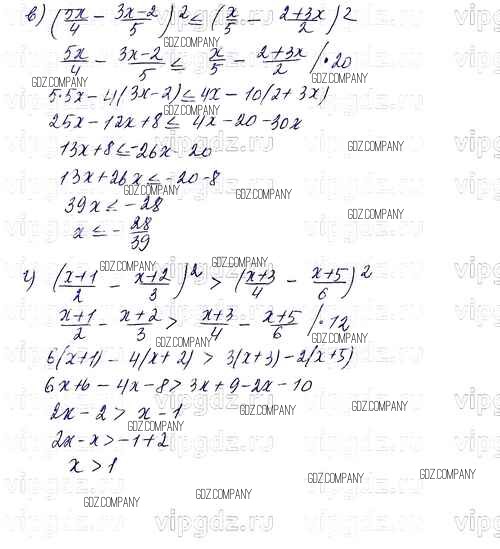 в) (5x/4 - 3x-2/5)2 ≤ (x/5 - 2+3x/2)2
5x/4 - 3x-2/5 ≤ x/5 - 2+3x/2 /·20
5·5x-4(3x-2)≤4x-10(2+3x)
25x-12x+8≤ 4x-20-30x
13x+8≤-26x-20
13x+26x≤-20-8
39x≤-28
x≤-28/39
г) (x+1/2 - x+2/3)2 > (x+3/4 - x+5/6)2
x+1/2 - x+2/3 > x+3/4 - x+5/6 /·12
6(x+1)-4(x+2)>3(x+3)-2(x+5)
6x+6-4x-8>3x+9-2x-10
2x-2>x-1
2x-x>-1+2
x>1
GDZ.COMPANY
vipgdz.ru